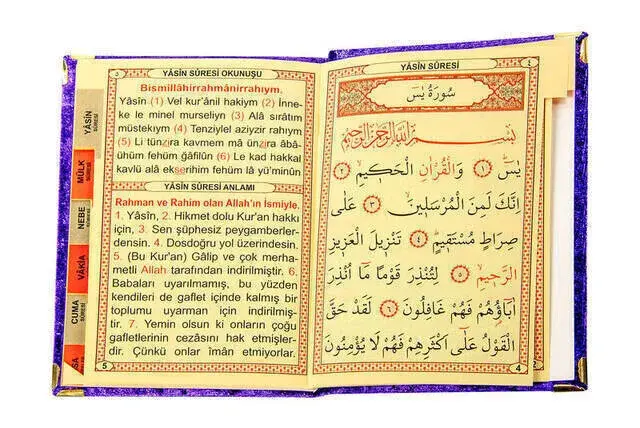 YÂSİN SÛRESİ OKUNUŞU
٥
Bismillâhirrahmânirrahıym.
Yâsîn (1) Vel kur'ânil hakiym (2) İnne-
ke le minel murseliyn (3) Alâ sırâtım
müstekıym (4) Tenziylel aziyzir rahıym
(5) Li tünzira kavmem mâ ünzira âbâ-
ühüm fehüm gâfilûn (6) Le kad hakkal
kavlü alâ ekserihim fehüm lâ yü'minûn
YÂSİN SÛRESİ ANLAMI
Rahman ve Rahim olan Allah'ın İsmiyle.
1. Yâsîn, 2. Hikmet dolu Kur'an hakkı
için, 3. Sen şüphesiz peygamberler-
densin. 4. Dosdoğru yol üzerindesin.
5. (Bu Kur'an) Gâlip ve çok merha-
metli Allah tarafından indirilmiştir. 6.
Babaları uyarılmamış, bu yüzden
kendileri de gaflet içinde kalmış bir
toplumu uyarman için indirilmiş-
tir. 7. Yemin olsun ki onların çoğu
gafletlerinin cezasını hak etmişler-
dir. Çünkü onlar îman etmiyorlar.
5
YÂSİN
SÛRESİ
MÜLK
SÛRESİ
NEBE
SÛRESİ
VÂKIA
SÛRESİ
CUMA
SÛRESİ
SA
YÂSİN SÛRESİ
٤
سُورَةُ يٰسٓ
بِسْمِ اللّٰهِ الرَّحْمٰنِ الرَّحِيمِ
يٰسٓ ﴿١﴾ وَالْقُرْاٰنِ الْحَكِيمِ ﴿٢﴾
اِنَّكَ لَمِنَ الْمُرْسَلِينَ ﴿٣﴾ عَلٰى
صِرَاطٍ مُسْتَقِيمٍ ﴿٤﴾ تَنْزِيلَ الْعَزِيزِ
الرَّحِيمِ ﴿٥﴾ لِتُنْذِرَ قَوْمًا مَٓا اُنْذِرَ
اٰبَٓاؤُ۬هُمْ فَهُمْ غَافِلُونَ ﴿٦﴾ لَقَدْ حَقَّ
الْقَوْلُ عَلٰٓى اَكْثَرِهِمْ فَهُمْ لَا يُؤْمِنُونَ
4
2